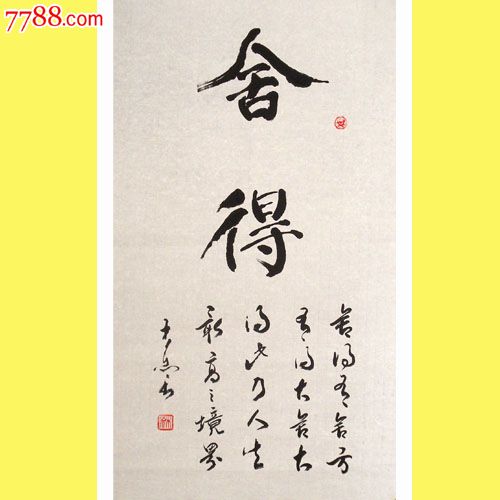 7788.com
舍
得
舍得有舍方
有得大舍大
得此乃人生
最高之境界